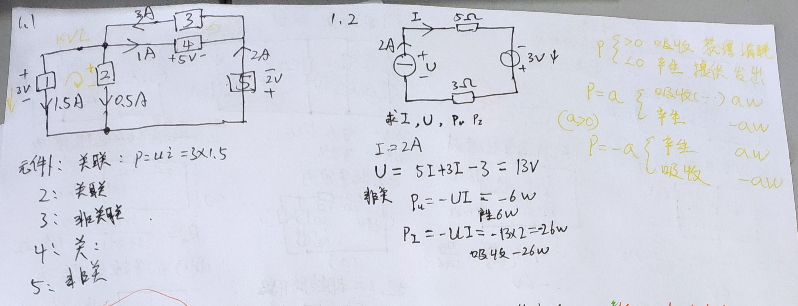 1.1
3A
3
KVL
1A
4
+5V-
2A
+
3V
-
1
2
5
-
2V
+
1.5A
0.5A
元件1: 关联: P=ui=3×1.5
2: 关联
3: 非关联
4: 关:
5: 非关
1.2
I
5Ω
2A
+
U
-
+
3V
-
3Ω
求I, U, Pu PI
I=2A
U= 5I+3I-3=13V
非关 Pu=-UI=-6w
产生6w
PI=-UI=-13×2=-26w
吸收-26w
P {>0 吸收 获得 消耗
<0 产生 提供 发出
P=a {吸收(-) aw
(a>0) 产生 -aw
P=-a {产生 aw
吸收 -aw